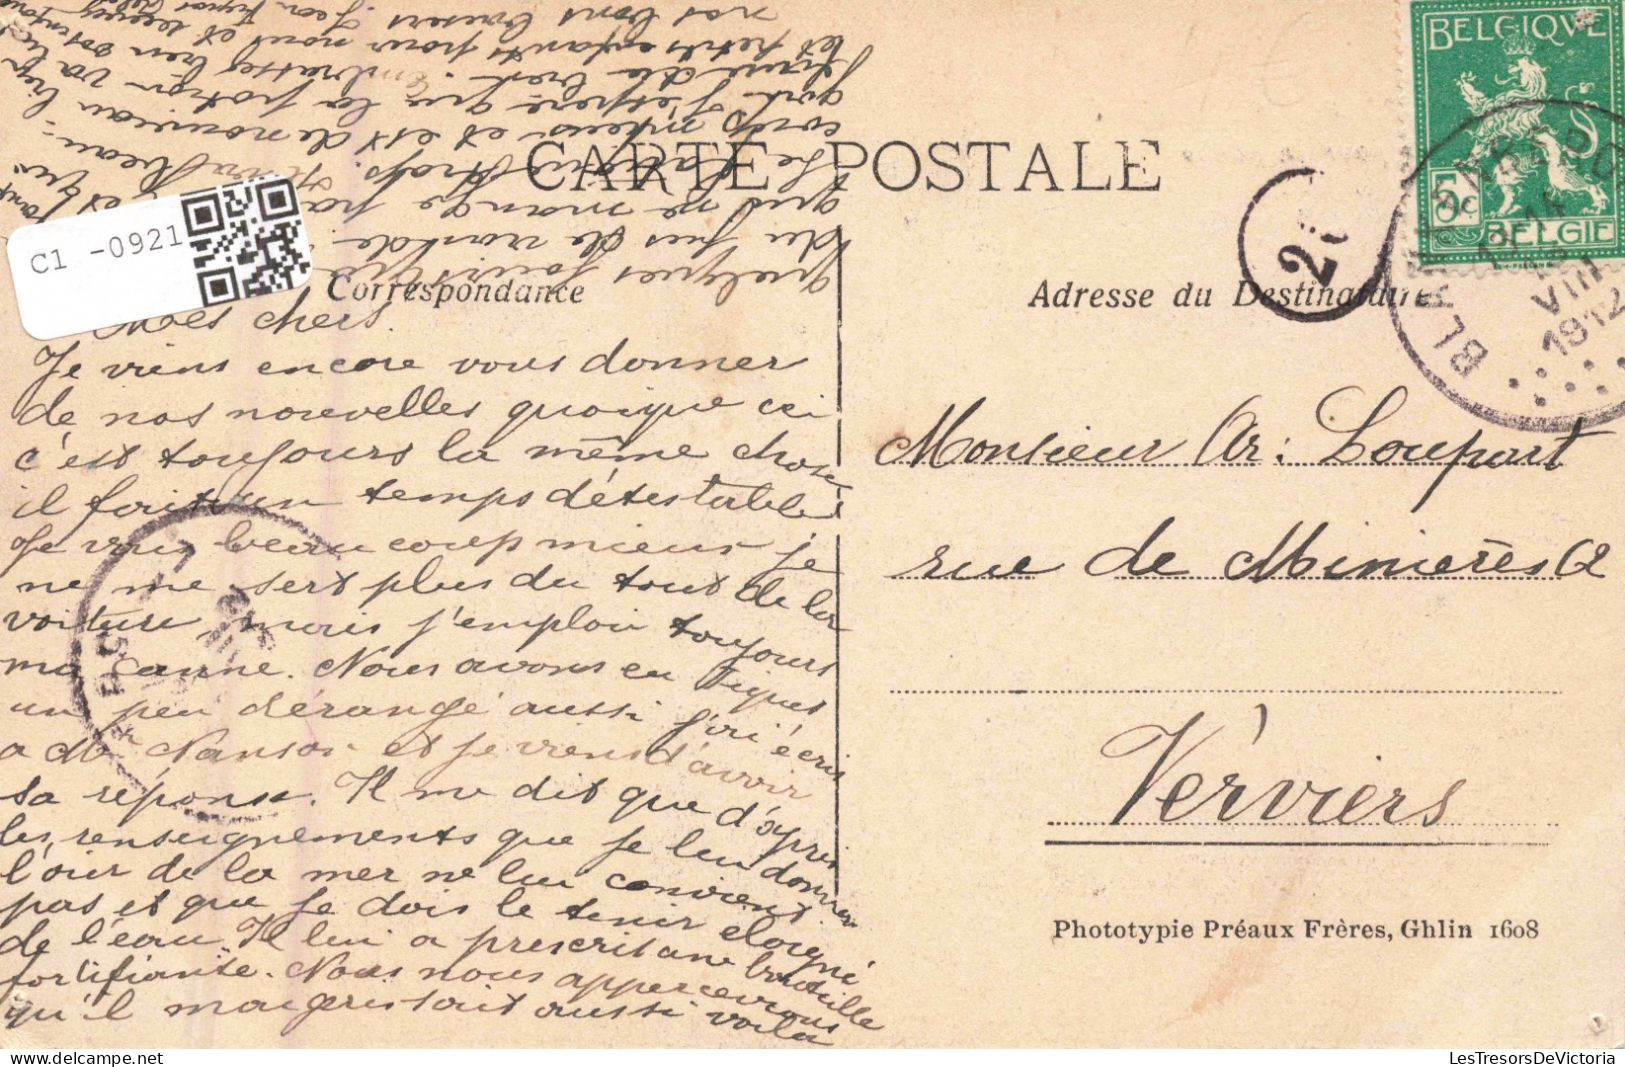 BELGIQVE
5c
BELGIE
CARTE POSTALE
C1 -0921
Correspondance
Adresse du Destinataire
VIII
1912
Mes chers.
Je viens encore vous donner
de nos nouvelles quoique ici
c'est toujours la même chose
il fait un temps détestable
Je vais beaucoup mieux je
ne me sert plus du tout de la
voiture, mais j'emploi toujours
ma canne. Nous avons eu
un peu dérangé aussi j'ai écris
a Mr et je viens d'avoir
sa réponse. Il me dit que d'après
les renseignements que je lui donner
l'air de la mer ne lui convient
pas et que je dois le tenir eloigné
de l'eau. Il lui a prescrit une bouteille
fortifiante. Nous nous appercevions
qu'il maigrissait aussi voila
quelques jours
qui ne mange pas
corps mieux et est de nouveau
j'espère que la
et petits enfants pour nous et recevez
nos bons baisers
Monsieur Ar: Loupart
rue de Minières 62
Verviers
Phototypie Préaux Frères, Ghlin 1608
LesTresorsDeVictoria